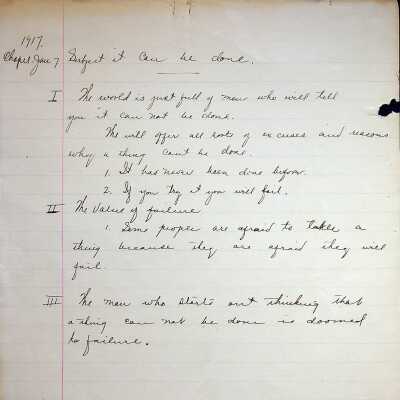 1917.
Chapel Jan 7 Subject it can be done.
I The world is just full of men who will tell
you it can not be done.
The will offer all sorts of excuses and reasons
why a thing cant be done.
1. It has never been done before.
2. If you try it you will fail.
II The value of failure
1. Some people are afraid to a
thing because they are afraid they will
fail.
III The man who starts out thinking that
a thing can not be done is doomed
to failure.